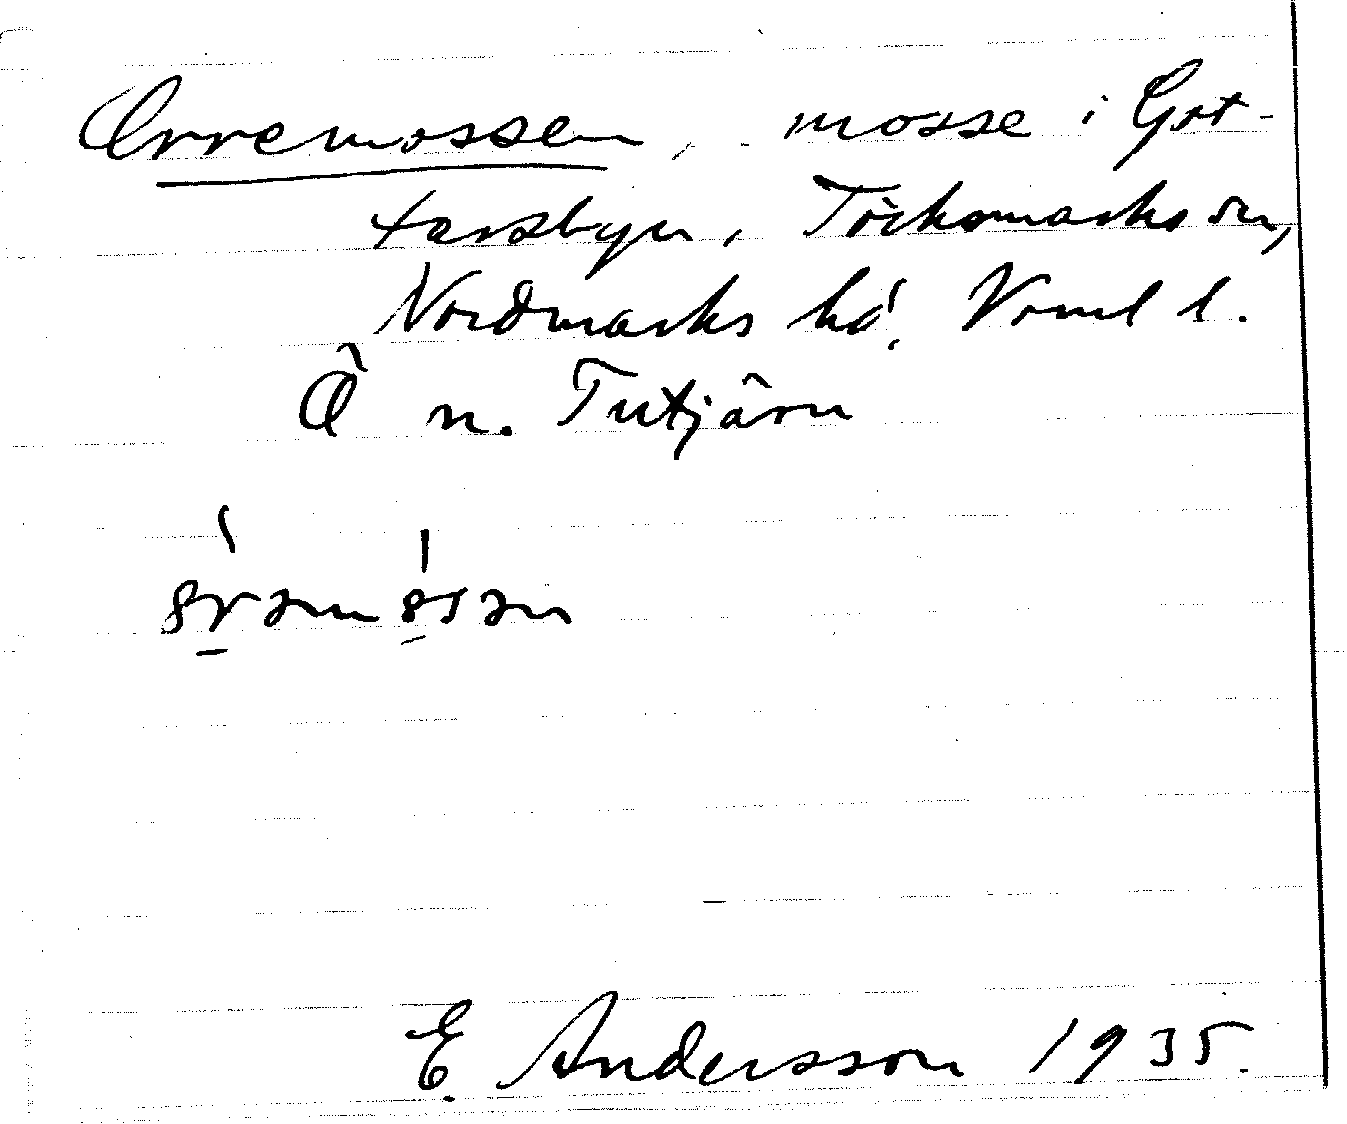 Orremossen, mosse i Got-
tarsbyn, Töcksmarks sn,
Nordmarks hd, Vrml l.
Ö n. Tutjärn
E. Andersson 1935.